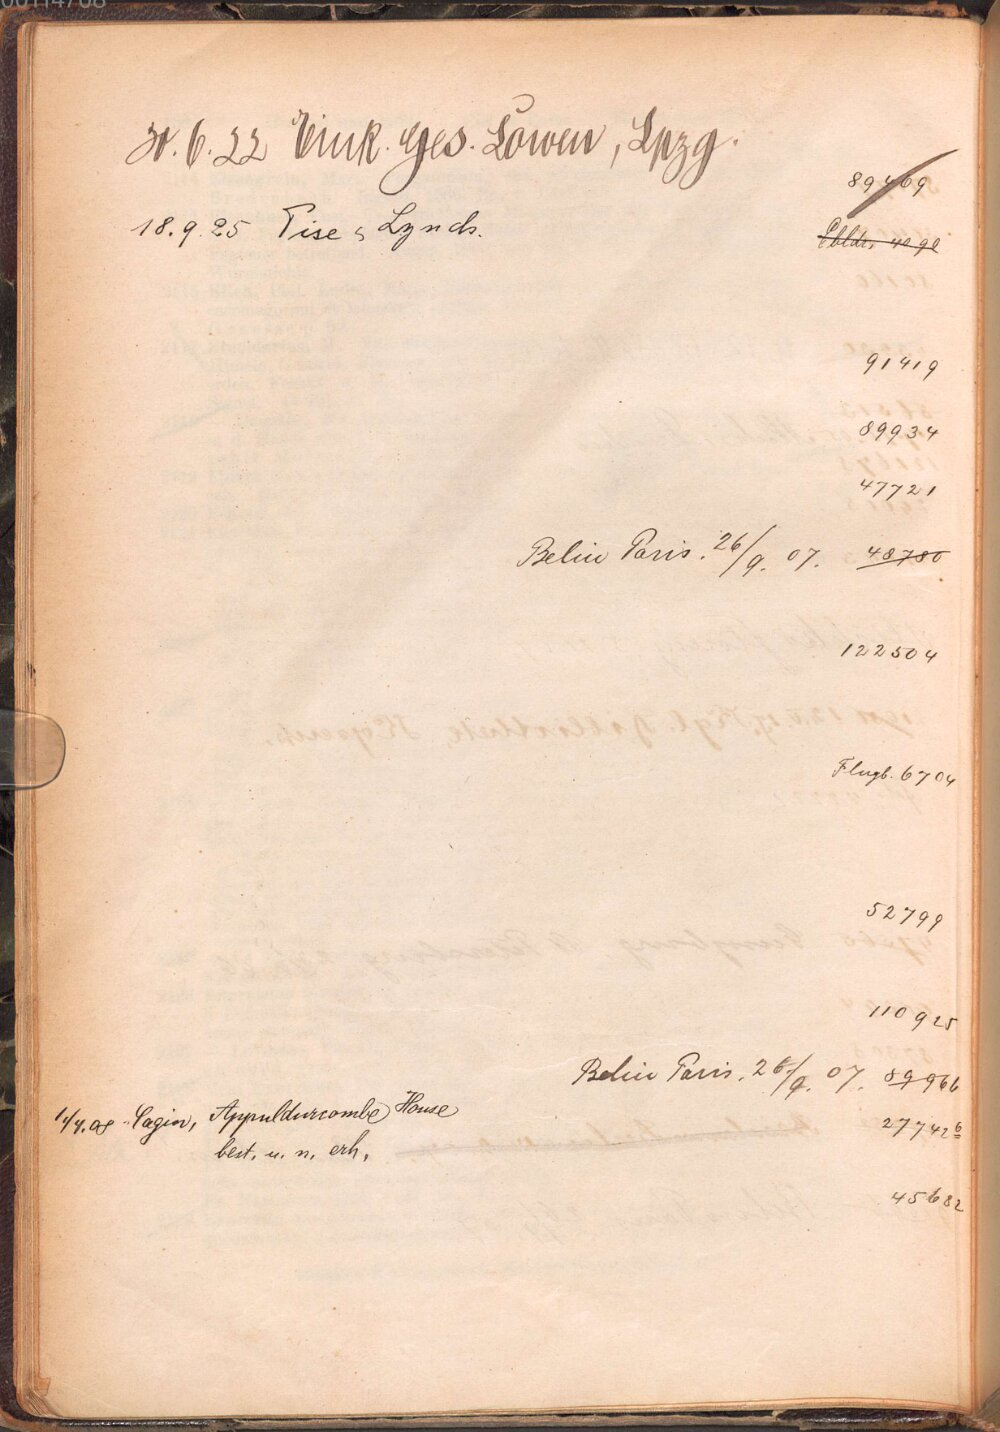 00114708
6. 22 Eink. Ges. Löwen, Lpzg.
89469
18. 9. 25 Tise & Lynch.
Ebldr. 4090
91419
89934
47721
Belin Paris. 26/9. 07. 48780
122504
Flugb. 6704
52799
110925
Belin Paris. 26/9. 07. 89966
Cagin, Appuldurcombe House
277426
best. u. n. erh.
45682